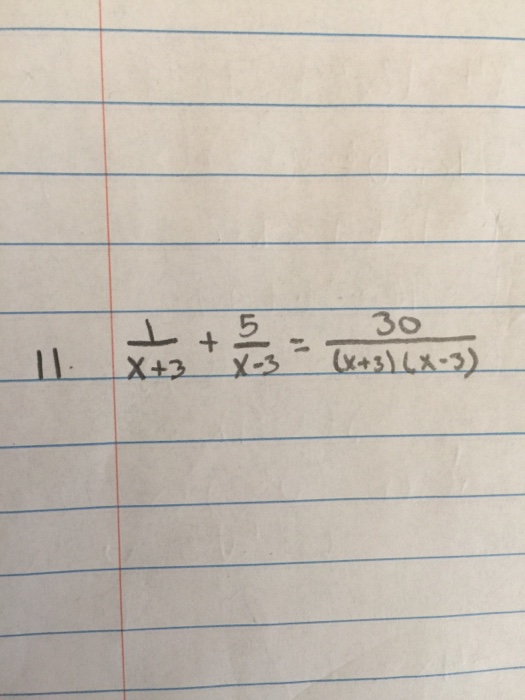 11. 1/(x+3) + 5/(x-3) = 30/((x+3)(x-3))